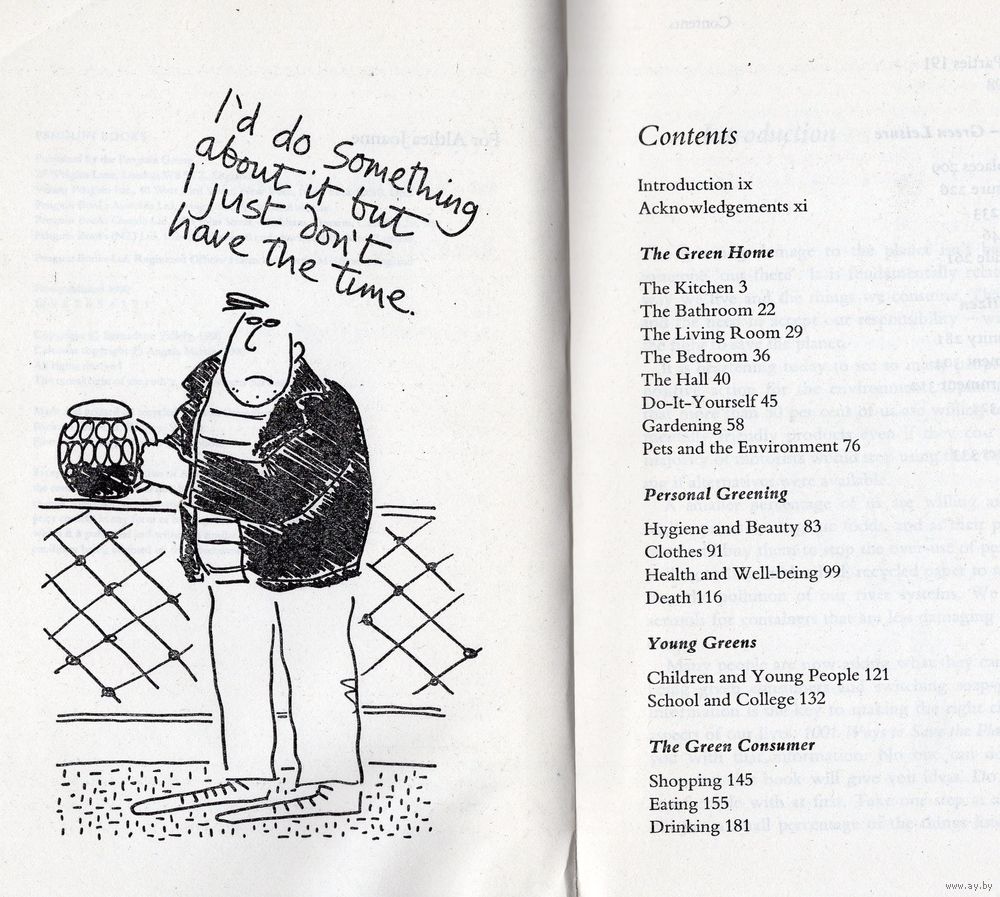 I'd do something
about it but
I just don't
have the time.
Contents
Introduction ix
Acknowledgements xi
The Green Home
The Kitchen 3
The Bathroom 22
The Living Room 29
The Bedroom 36
The Hall 40
Do-It-Yourself 45
Gardening 58
Pets and the Environment 76
Personal Greening
Hygiene and Beauty 83
Clothes 91
Health and Well-being 99
Death 116
Young Greens
Children and Young People 121
School and College 132
The Green Consumer
Shopping 145
Eating 155
Drinking 181
www.ay.by